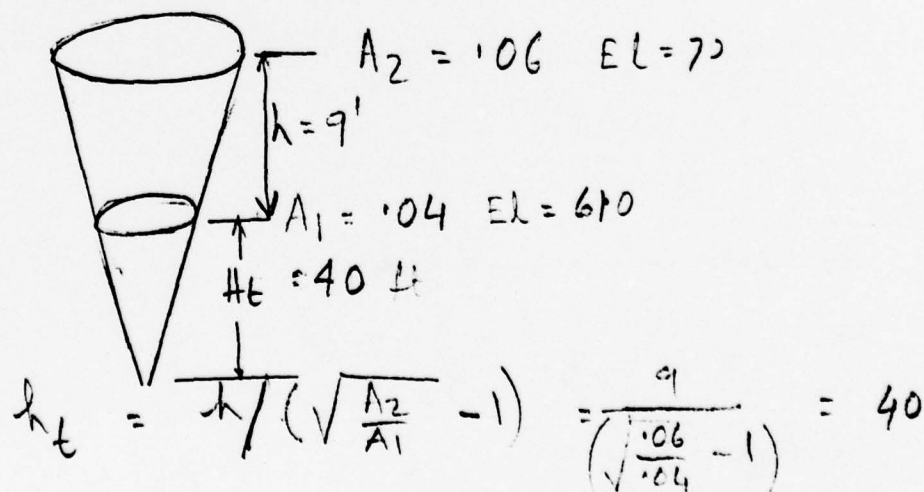 A₂ = .06 El = 70
h = 9'
A₁ = .04 El = 610
Ht = 40 ft
hₜ = h/(√(A₂/A₁) - 1) = 9/(√(.06/.04) - 1) = 40